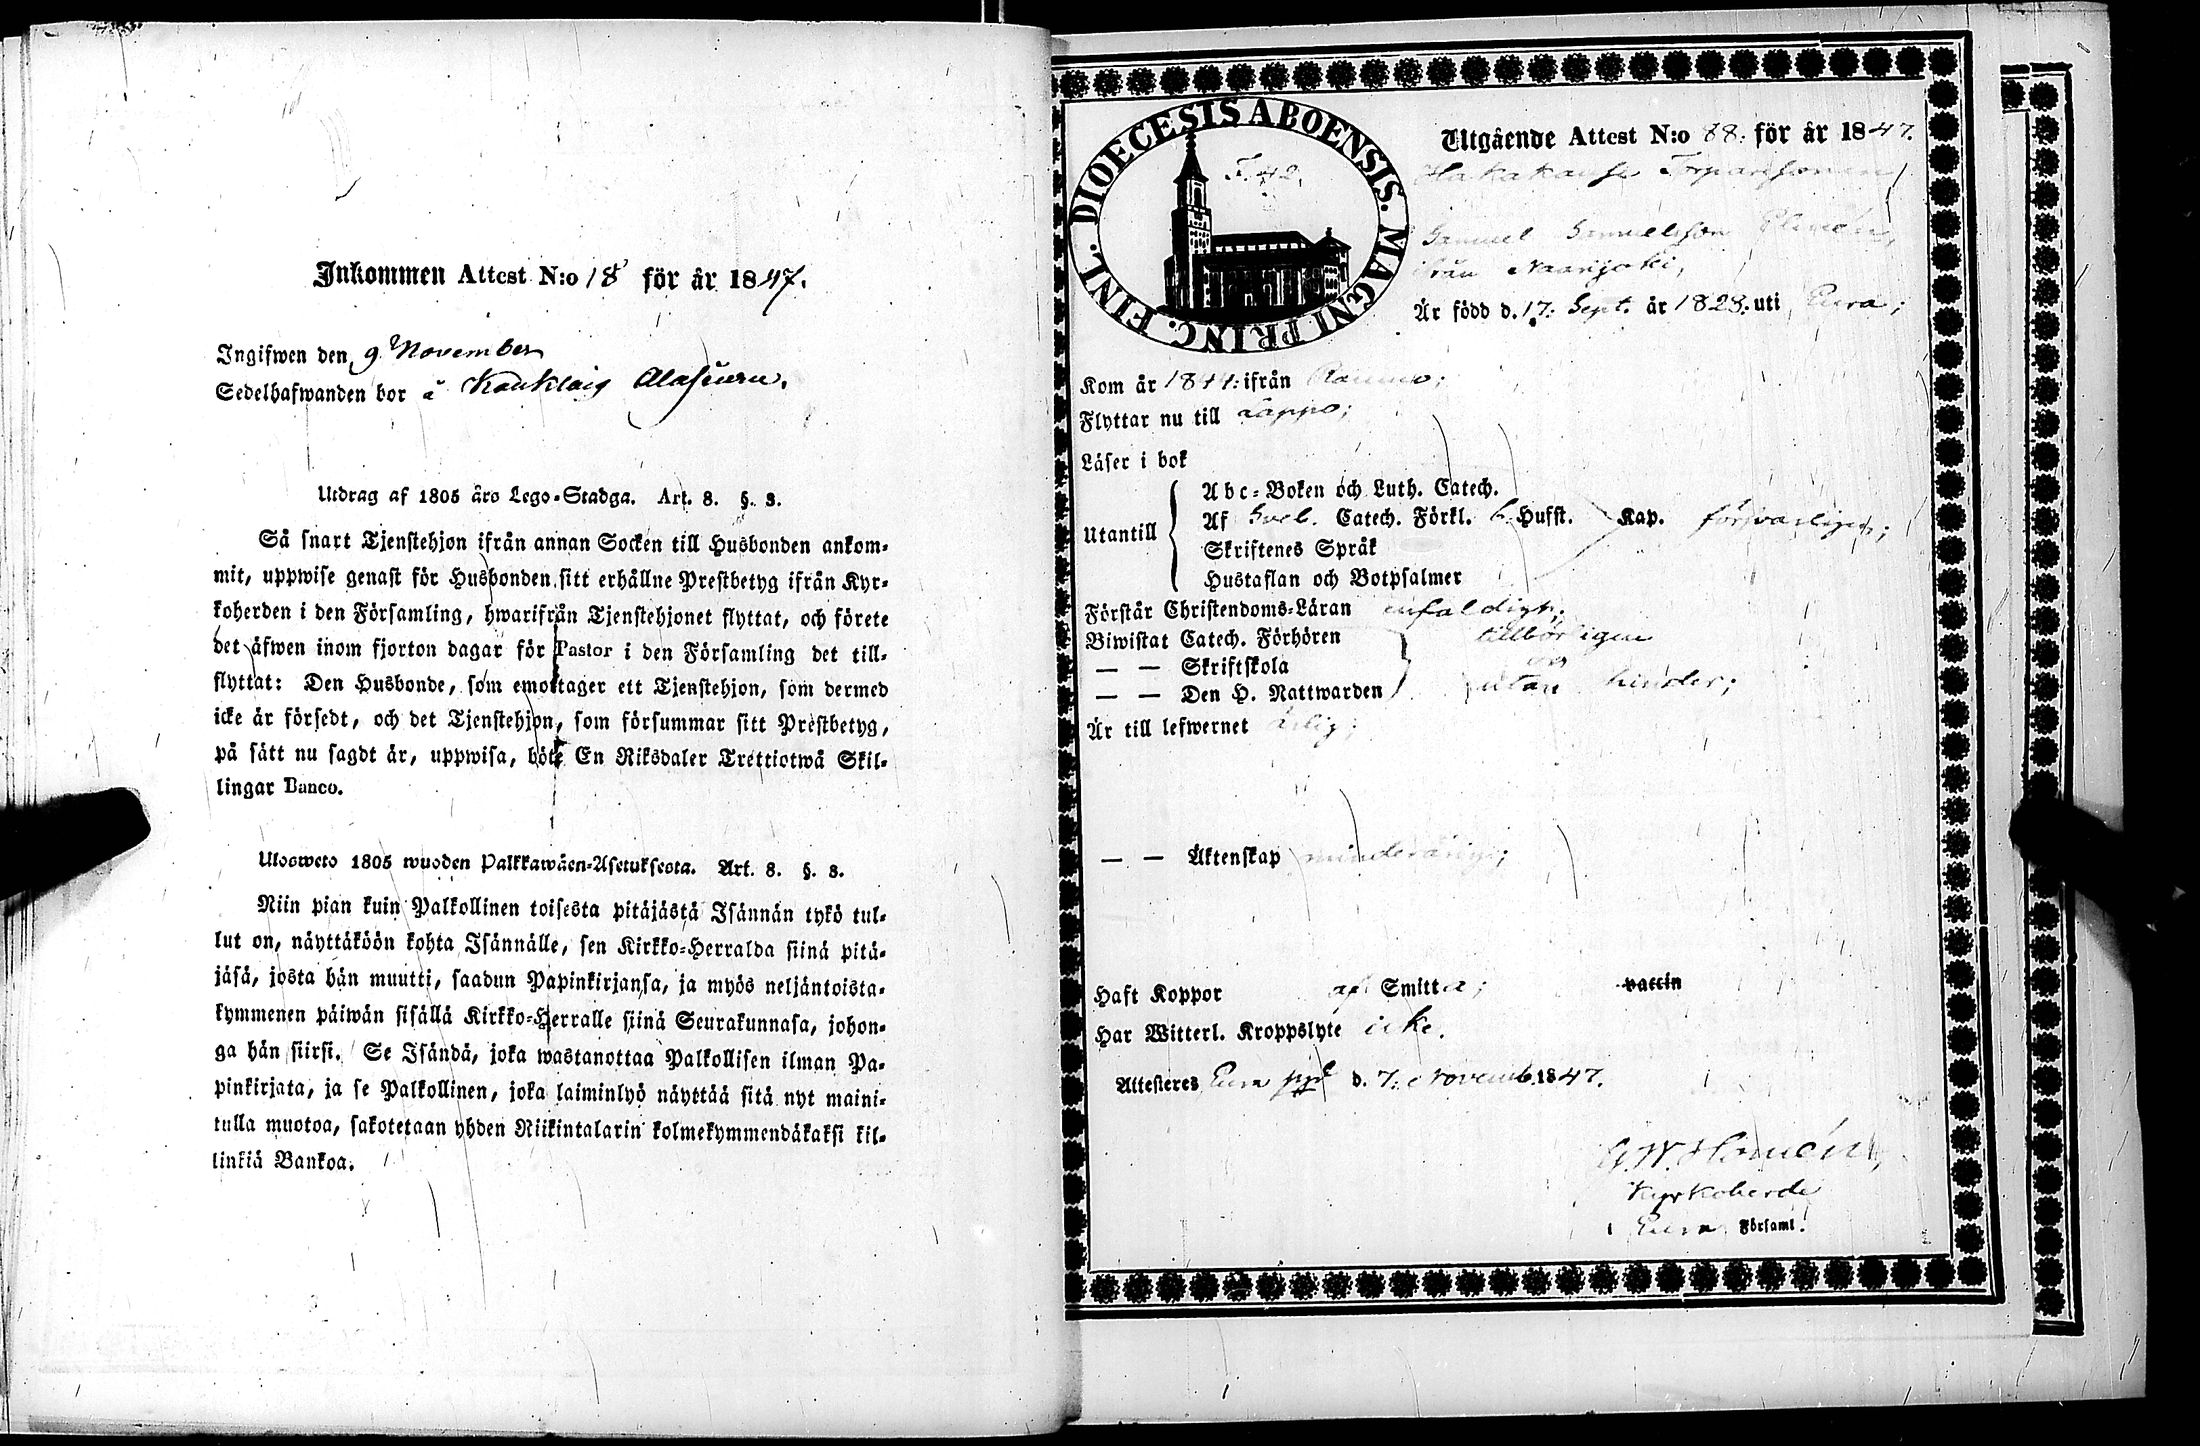 Inkommen Attest N:o 18 för år 1847.
Ingifwen den 9 November
Sedelhafwanden bor å Kauklaig
Utdrag af 1805 års Lego-Stadga. Art. 8. §. 3.
Så snart Tjenstehjon ifrån annan Socken till Husbonden ankom-
mit, uppwise genast för Husbonden sitt erhållne Prestbetyg ifrån Kyr-
koherden i den Församling, hwarifrån Tjenstehjonet flyttat, och förete
det äfwen inom fjorton dagar för Pastor i den Församling det till-
flyttat: Den Husbonde, som emottager ett Tjenstehjon, som dermed
icke är försedt, och det Tjenstehjon, som försummar sitt Prestbetyg,
på sätt nu sagdt är, uppwisa, böte En Riksdaler Trettiotwå Skil-
lingar Banco.
Ulosweto 1805 wuoden Palkkawäen-Asetuksesta. Art. 8. §. 3.
Niin pian kuin Palkollinen toisesta pitäjästä Isännän tykö tul-
lut on, näyttäköön kohta Isännälle, sen Kirkko-Herralda siinä pitä-
jäsä, josta hän muutti, saadun Papinkirjansa, ja myös neljäntoista-
kymmenen päiwän sisällä Kirkko-Herralle siinä Seurakunnasa, johon-
ga hän siirsi. Se Isändä, joka wastanottaa Palkollisen ilman Pa-
pinkirjata, ja se Palkollinen, joka laiminlyö näyttää sitä nyt maini-
tulla muotoa, sakotetaan yhden Riikintalarin kolmekymmendäkaksi kil-
linkiä Bankoa.
DIOECESIS ABOENSIS. MAGNI PRINC. FINL.
F. 42.
Utgående Attest N:o 88. för år 1847.
Torparesonen
Samuel Samuelsson
ifrån Naarjoki,
Är född d. 17. Sept. år 1828. uti Eura;
Kom år 1844. ifrån Raumo;
Flyttar nu till Lappo;
Läser i bok
Utantill
Abc-Boken och Luth. Catech.
Af Sveb. Catech. Förkl. 6 Hufst. Kap. försvarligen;
Skriftenes Språk
Hustaflan och Botpsalmer
Förstår Christendoms-Läran enfaldigt;
Biwistat Catech. Förhören tillbörligen
— — Skriftskola och
— — Den H. Nattwarden utan hinder;
Är till lefwernet ärlig;
— — Äktenskap minderårig;
Haft Koppor af Smitta; vaccin
Har Witterl. Kroppslyte icke.
Attesteres Eura d. 7. Novemb. 1847.
G.W. Homén,
Kyrkoherde
i Eura Församl.